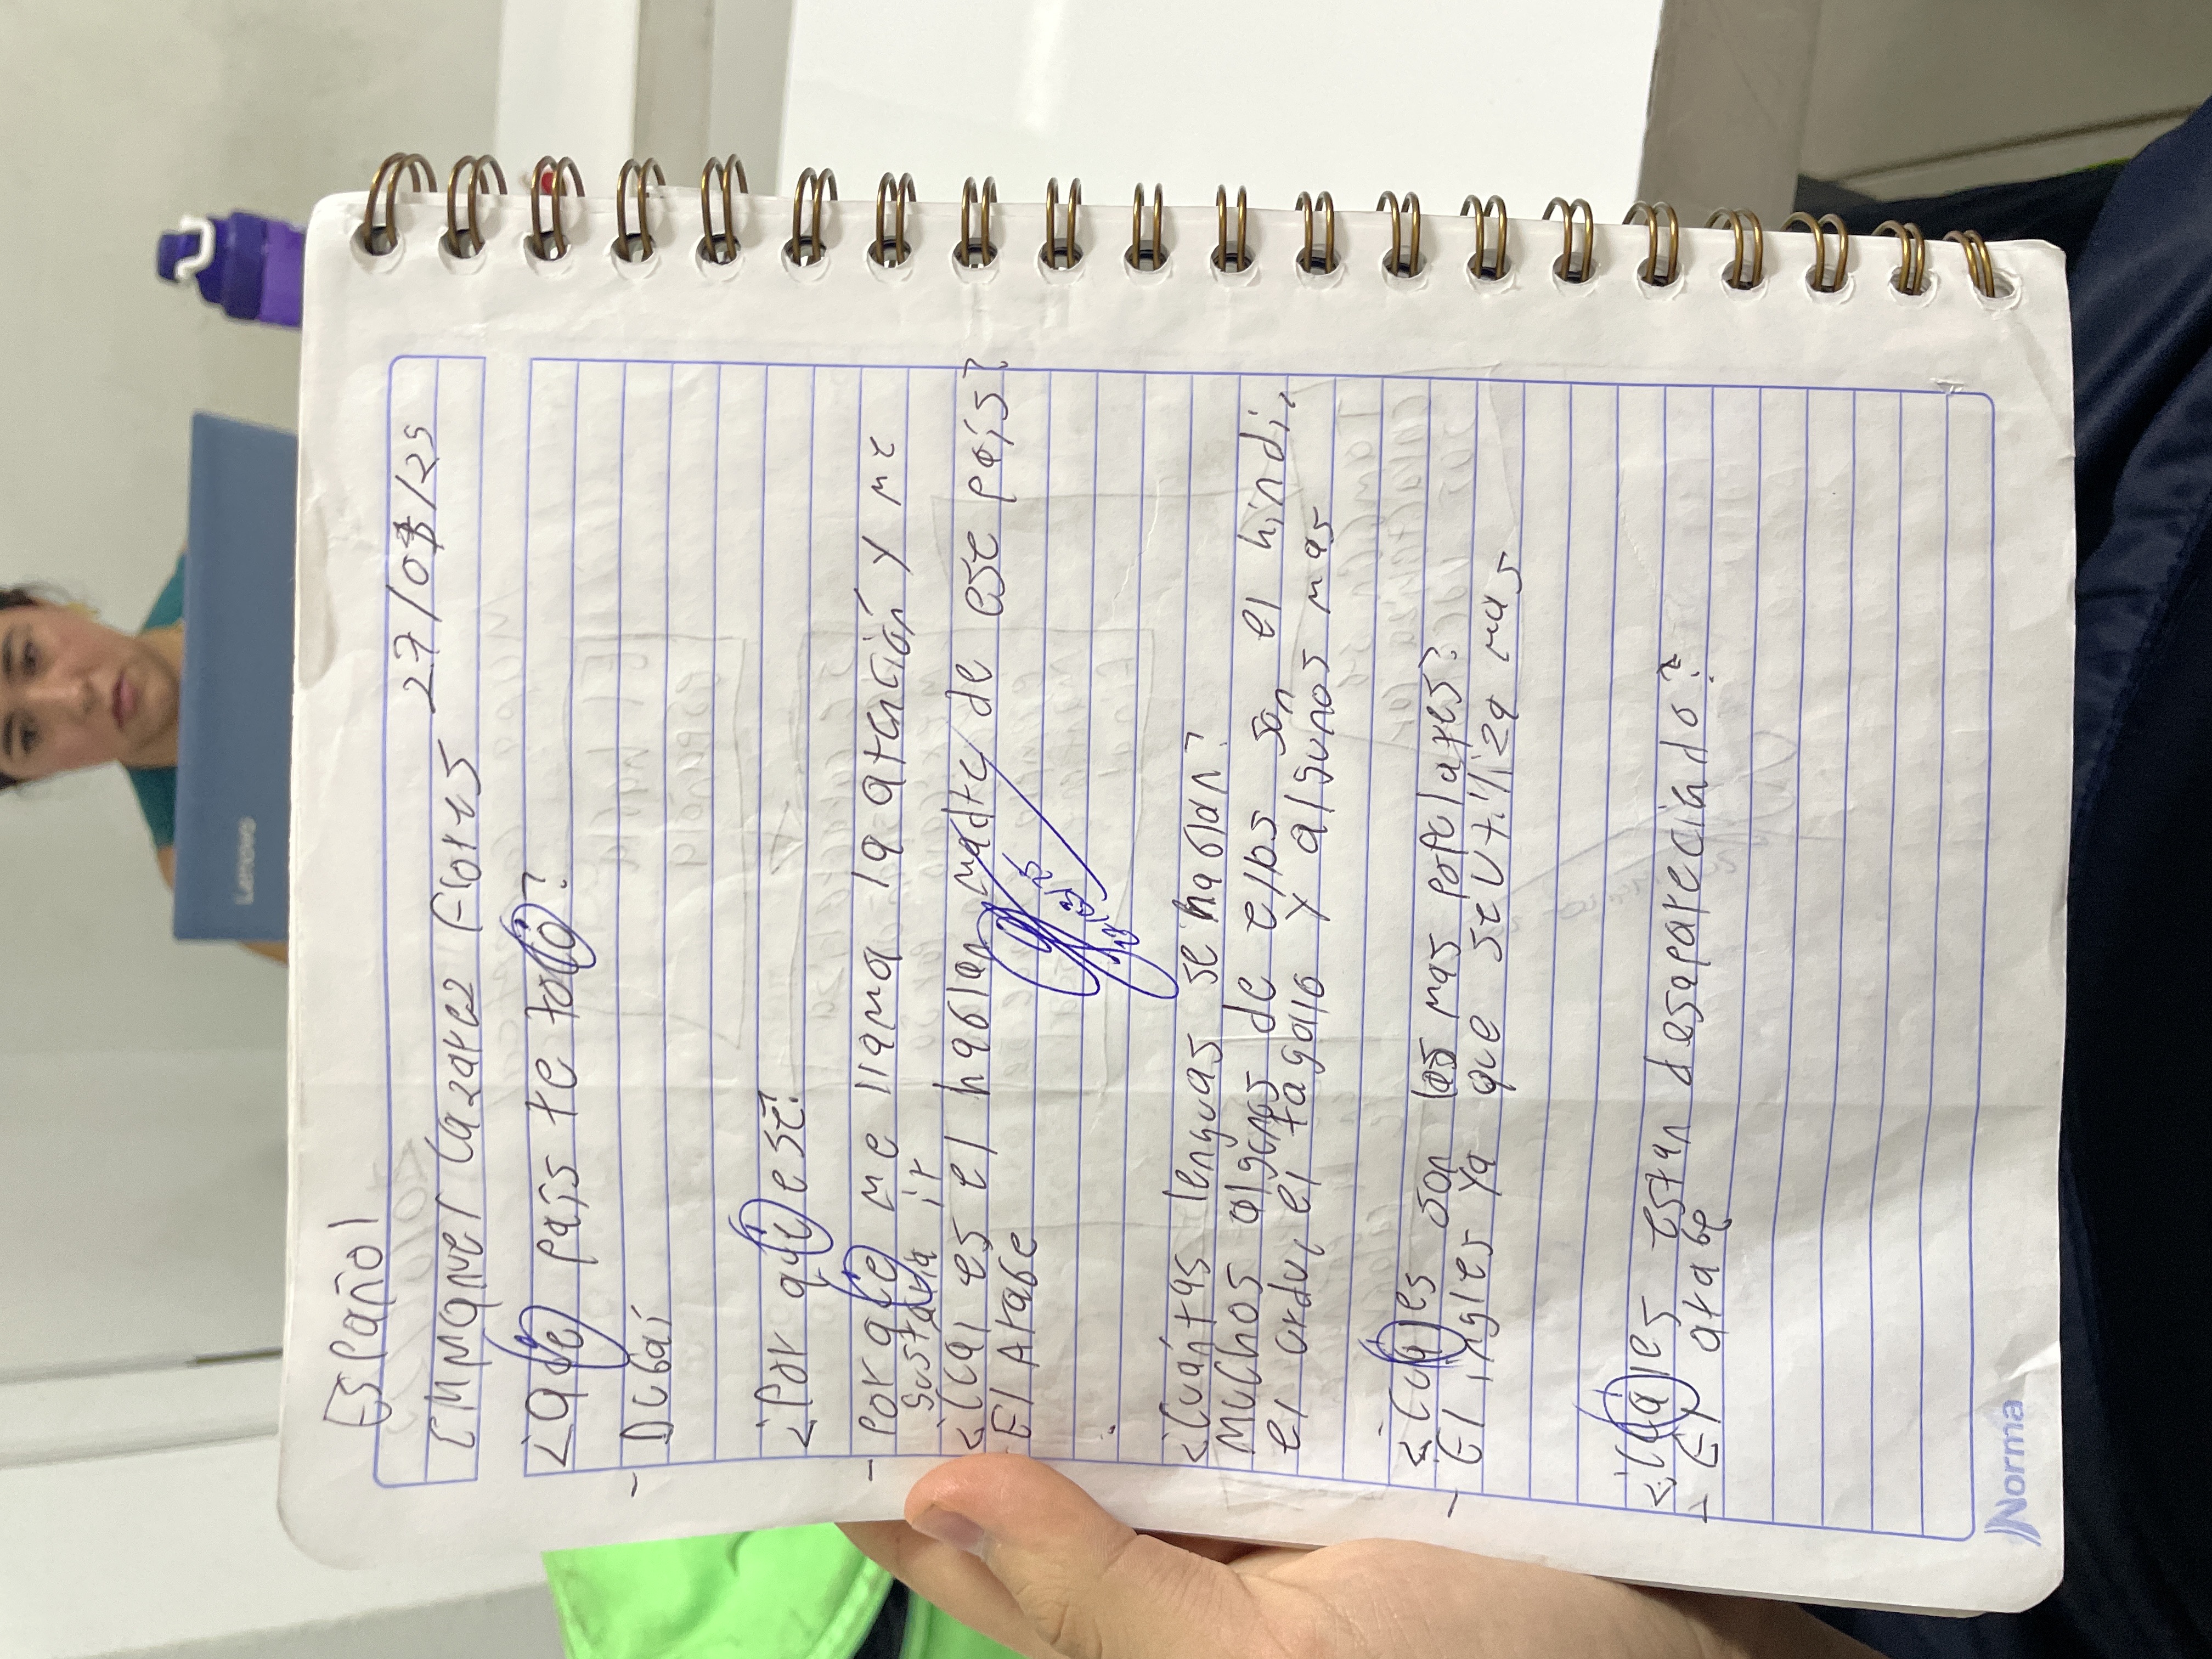 Español
Emmanuel Cazarez Flores 27/08/25
¿Qué país te tocó?
- Dubaí
¿Por qué ese?
- Por qué me llama la atención y me
gustaría ir
¿Cuál es el hablan madre de ese país?
- El Arabe
¿Cuántas lenguas se hablan?
Muchos algunos de ellos son el hindi,
el urdu, el tagalo y algunos mas
¿Cuáles son las mas populares?
- El ingles ya que se utiliza mas
¿Cuáles estan desapareciendo?
- El arabe
Norma
Lenovo